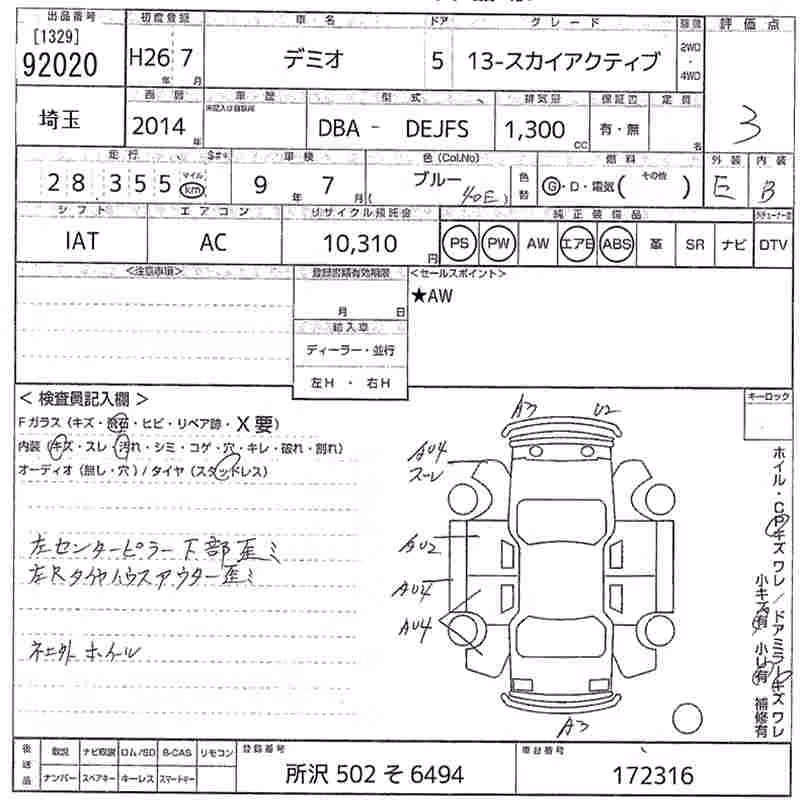 出品番号 初度登録 車名 ドア グレード 駆動 評価点
[1329]
92020 H26年 7月 デミオ 5 13-スカイアクティブ 2WD・4WD 3
西暦 車歴 型式 排気量 保証書 定員
埼玉 2014年 未記入は自家用 DBA - DEJFS 1,300cc 有・無 名
走行 $#* 車検 色(Col.No) 燃料 外装 内装
28355 マイル km 9年 7月 ブルー (40E) 色替 G・D・電気( その他 ) E B
シフト エアコン リサイクル預託金 純正装備品
IAT AC 10,310円 PS PW AW エアB ABS 革 SR ナビ DTV
<注意事項> 登録書類有効期限 <セールスポイント>
月 日 ★AW
輸入車
ディーラー・並行
左H ・ 右H
<検査員記入欄> キーロック
Fガラス(キズ・飛石・ヒビ・リペア跡・X要)
内装(キズ・スレ・汚れ・シミ・コゲ・穴・キレ・破れ・割れ)
オーディオ(無し・穴)/タイヤ(スタッドレス)
左センターピラー下部歪ミ
左Rタイヤハウスアウター歪ミ
ネエ外 ホイール
A3 U2
AU4
スーレ
AU2
AU4
AU4
A3
ホイル・CPキズ ワレ/ドアミラーキズ ワレ
小キズ有 小U有 補修有
後送品 取説 ナビ取説 ロム/SD B-CAS リモコン 登録番号 車台番号
ナンバー スペアキー キーレス スマートキー 所沢 502 そ 6494 172316